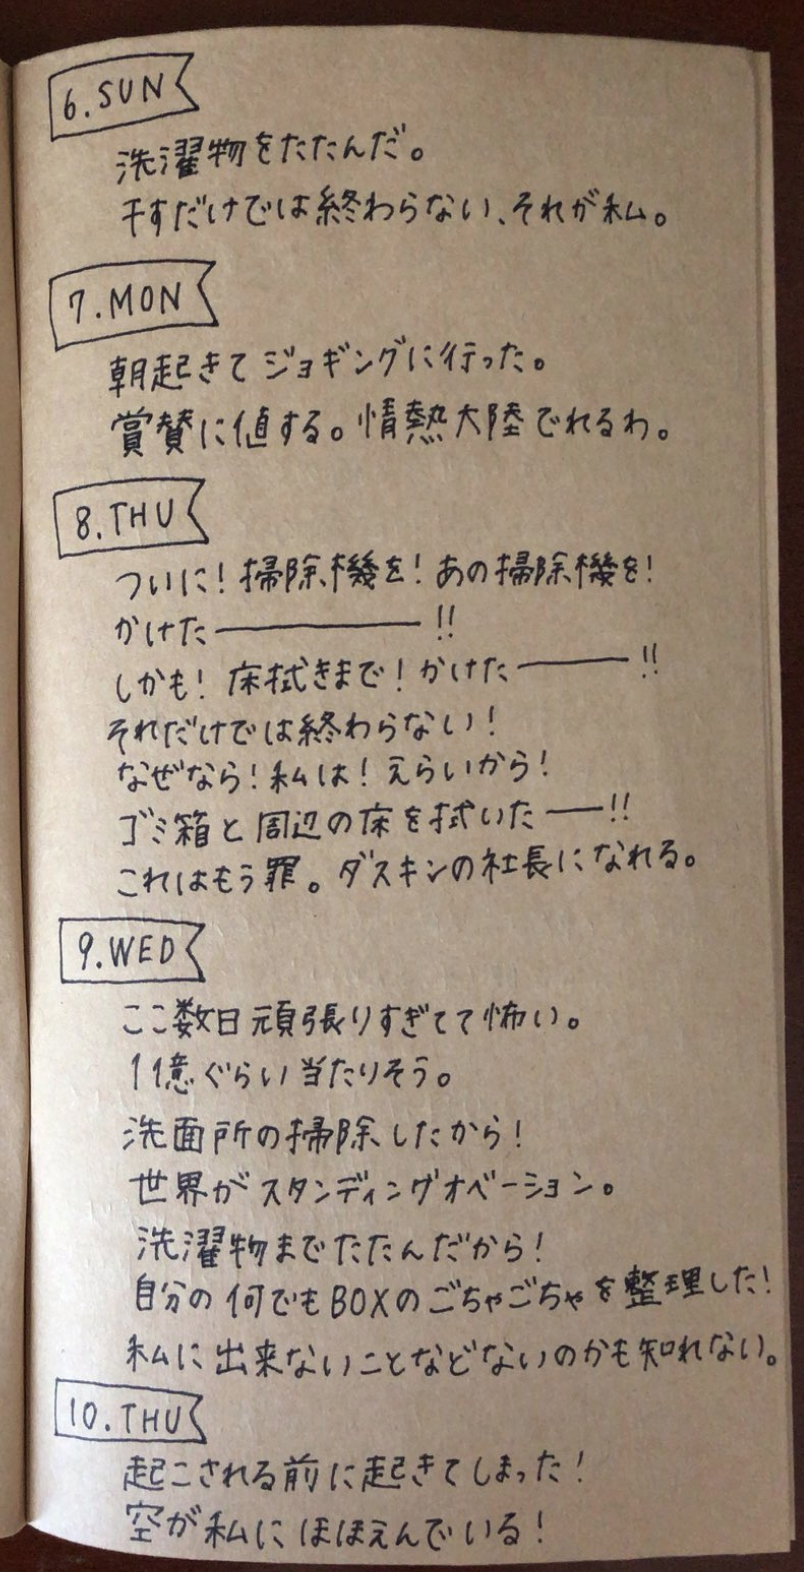 6.SUN
洗濯物をたたんだ。
干すだけでは終わらない、それが私。
7.MON
朝起きてジョギングに行った。
賞賛に値する。情熱大陸でれるわ。
8.THU
ついに!掃除機を!あの掃除機を!
かけた――――――!!
しかも!床拭きまで!かけた―――!!
それだけでは終わらない!
なぜなら!私は!えらいから!
ゴミ箱と周辺の床を拭いた――!!
これはもう罪。ダスキンの社長になれる。
9.WED
ここ数日頑張りすぎてて怖い。
1億ぐらい当たりそう。
洗面所の掃除したから!
世界がスタンディングオベーション。
洗濯物までたたんだから!
自分の何でもBOXのごちゃごちゃを整理した!
私に出来ないことなどないのかも知れない。
10.THU
起こされる前に起きてしまった!
空が私にほほえんでいる!